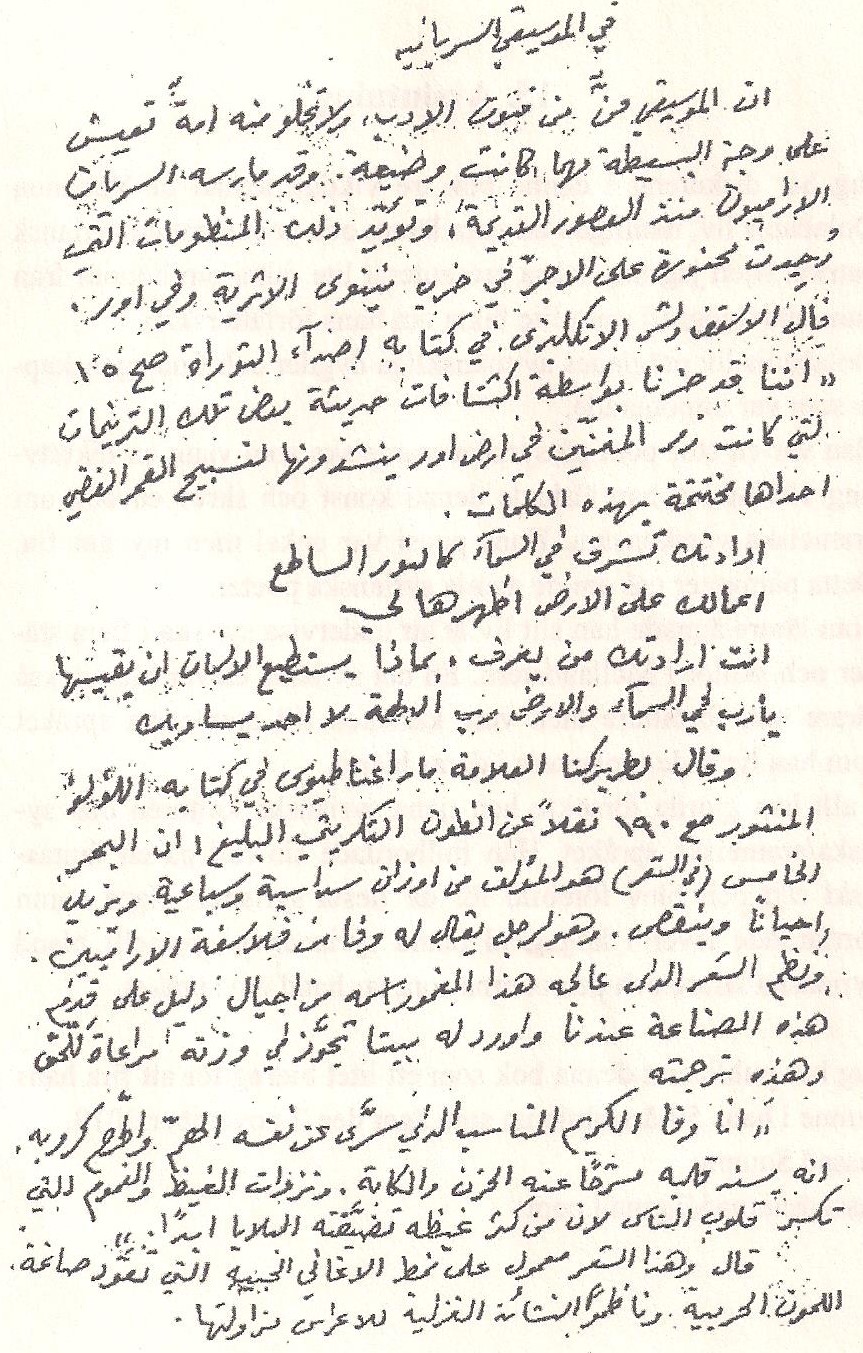 في الموسيقي السريانيه
ان الموسيقي فنٌّ من فنون الادب، ولا تخلو منه امةٌ تعيش
على وجه البسيطة مهما كانت وضيعة. وقد مارسه السريان
الاراميون منذ العصور القديمة، وتؤيّد ذلك المنظومات التي
وجدت محفورة على الاجرّ في خرب نينوى الاثرية وفي اور.
قال الاسقف ولش الانكليزي في كتابه اصدآء التوراة صح ١٥
" اننا قد حزنا بواسطة اكتشافات حديثة بعض تلك الترنيمات
لتي كانت زمر المغنّين في ارض اور ينشدونها لتسبيح القمر الفضي
احداها مختتمة بهذه الكلمات.
ارادتك تشرق في السمآء كالنور الساطع
اعمالك على الارض اظهرها لي
انت ارادتك من يعرف، بماذا يستطيع الانسان ان يقيسها
يارب في السمآء والارض رب الاطمة لا احد يساويك
وقال بطريركنا العلامة مار اغناطيوس في كتابه اللؤلؤ
المنثور صح ١٩٠ نقلاً عن انطون التكريتي البليغ ا ان البحر
الخامس (في الشعر) هو المؤلف من اوزان سداسية وسباعية ويزيد
احياناً وينقص. وهو لرجل يقال له وفا من فلاسفة الاراميين.
ونظم الشعر الذى عالجه هذا المغمور اسمه من اجيال دليل على قدم
هذه الصناعة عندنا واورد له بيتا تجوَّز في وزنه مراعاة للّحن
وهذه ترجمته
" انا وفا الكريم المناسب الذي سرَّى عن نفسه الهمّ واطّرح كروبه.
انه يسند قلبه مسرّحًا عنه الحزن والكابة. ونزوات الغيظ والغموم التي
تكسر قلوب الناس لان من كثر غيظه تضيّقته البلايا ابدًا. "
قال وهذا الشعر معمول على نمط الاغاني الحبيه التي تعوَّد صاغة
اللحون الحربية وناظموا النشائد الغزلية للاعراس مزاولتها.